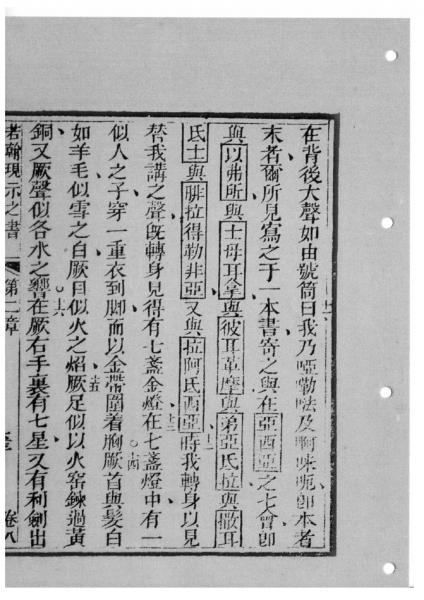 在背後大聲如由號筒曰我乃啞嘞𠵽及啊咪呃卽本者
末者爾所見寫之于一本書寄之與在亞西亞之七會卽
與以弗所與士母耳拿與彼耳革摩與弟亞氐拉與撒耳
氐士與腓拉得勒非亞又與拉阿氐西亞時我轉身以見
替我講之聲旣轉身見得有七盞金燈在七盞燈中有一
似人之子穿一重衣到脚而以金帶圍着胸厥首與髮白
如羊毛似雪之白厥目似火之焰厥足似以火窑鍊過黃
銅又厥聲似各水之響在厥右手裏有七星又有利劍出
若翰現示之書 第一章 卷八
十二
十三
十四
十五
十六